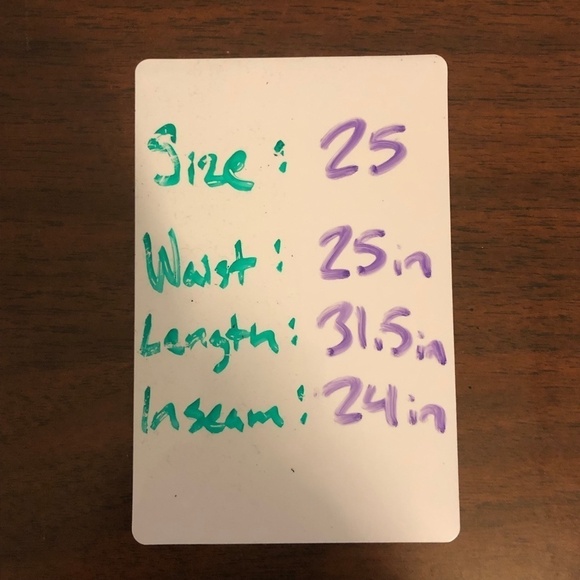 Size: 25
Waist: 25in
Length: 31.5in
Inseam: 24in